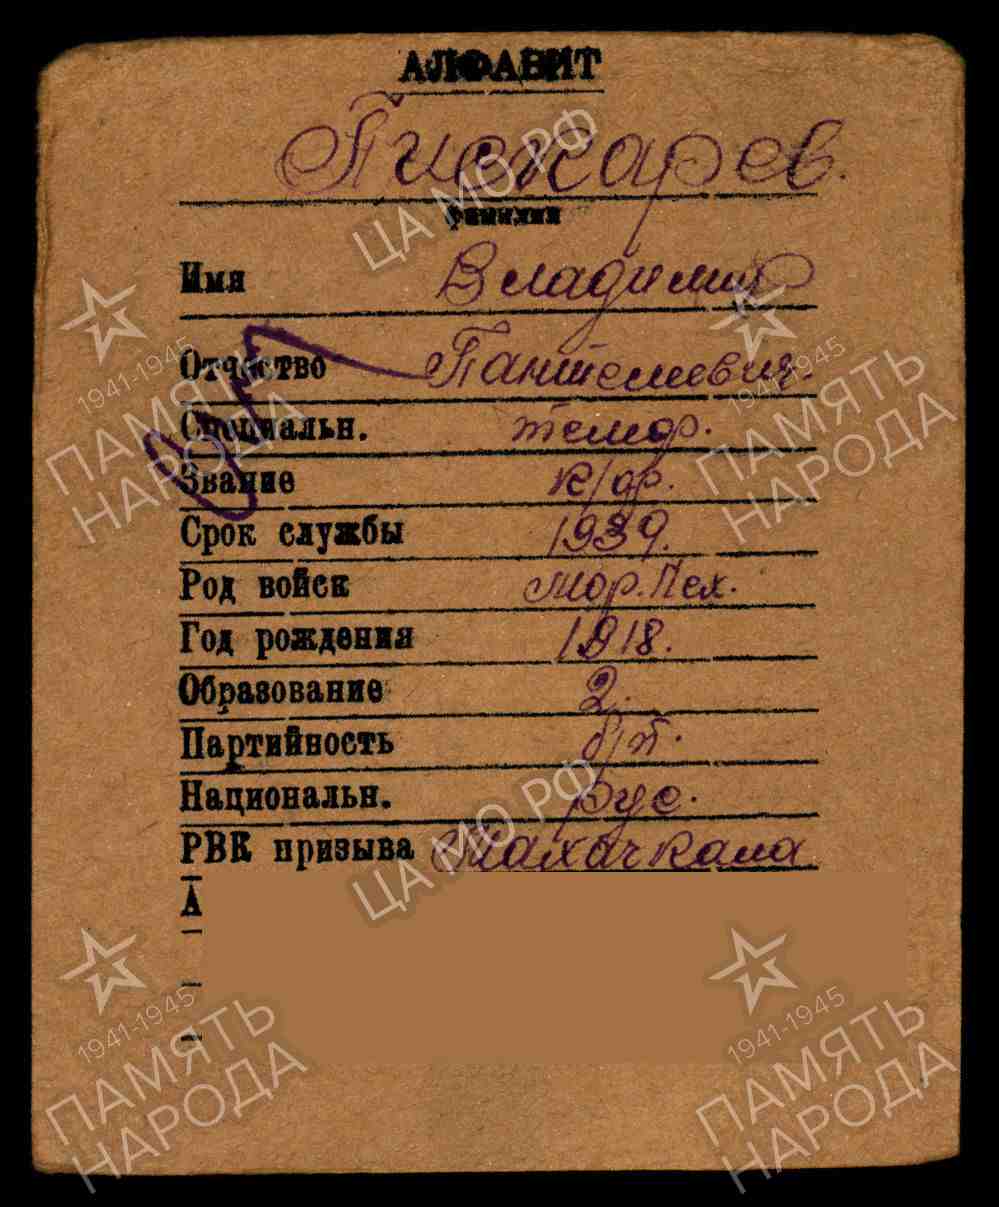 АЛФАВИТ
Пискарев.
фамилия
Имя Владимир
Отчество Пантелеевич.
Специальн.
Звание к/ф.
Срок службы 1939.
Род войск мор. пех.
Год рождения 1918.
Образование 2.
Партийность б/п.
Национальн. Рус.
РВК призыва Махачкала
А
ЦА МО РФ
1941-1945
ПАМЯТЬ
НАРОДА
1941-1945
ПАМЯТЬ
НАРОДА
ЦА МО РФ
1941-1945
ПАМЯТЬ
НАРОДА
1941-1945
ПАМЯТЬ
НАРОДА